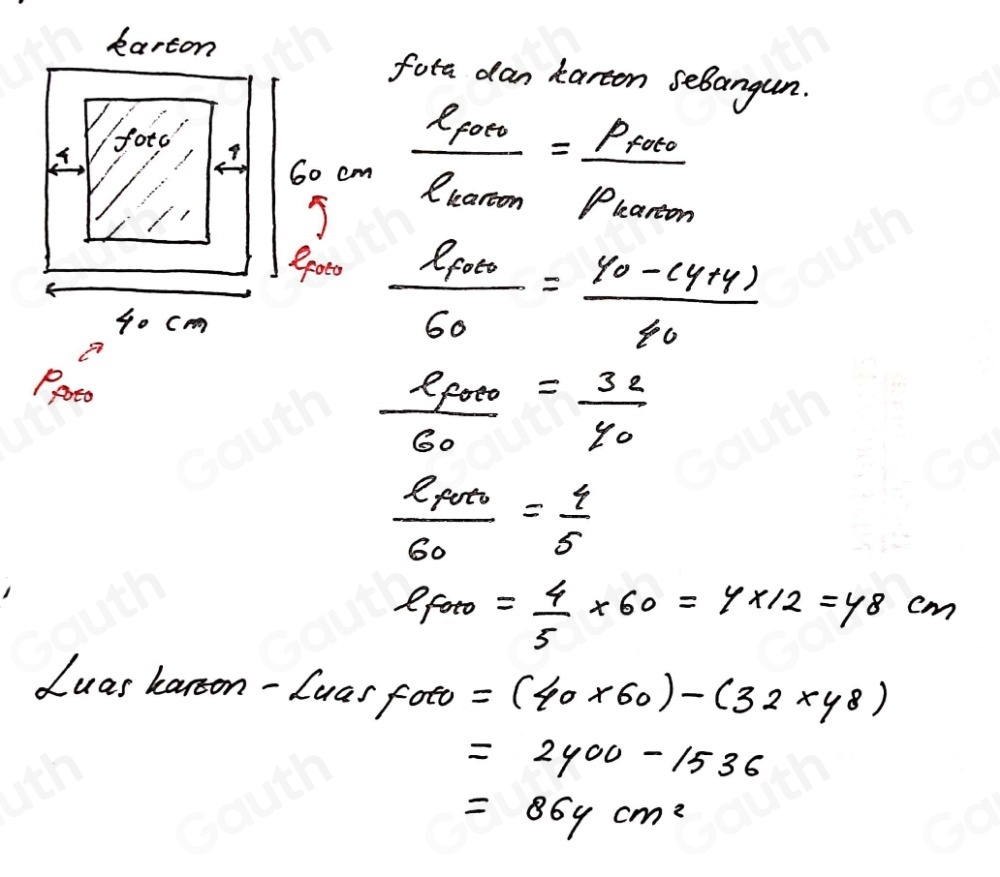 karton
foto
4
4
60 cm
lfoto
40 cm
Pfoto
foto dan karton sebangun.
lfoto / lkarton = Pfoto / Pkarton
lfoto / 60 = 40 - (4+4) / 40
lfoto / 60 = 32 / 40
lfoto / 60 = 4 / 5
lfoto = 4/5 × 60 = 4 × 12 = 48 cm
Luas karton - Luas foto = (40 × 60) - (32 × 48)
= 2400 - 1536
= 864 cm²
Gauth